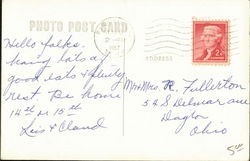 PHOTO POST CARD
Hello folks.
having lots of
good eats & plenty
rest. Be home
14th or 15th
& Claud
ADDRESS
2¢
Mr & Mrs R. Fullerton
Delmar ave
Dayton
Ohio